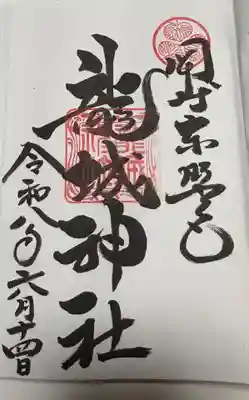 岡崎東照宮
龍城神社
令和八年六月十四日